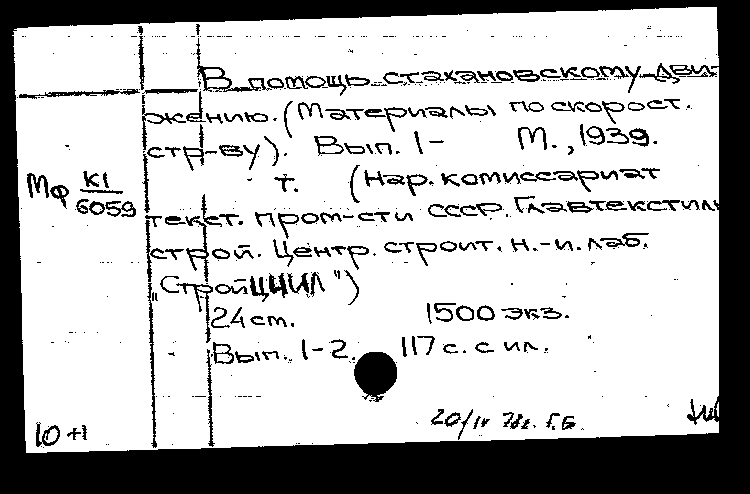 В помощь стахановскому дви-
жению. (Материалы по скорост.
стр-ву). Вып. 1- М., 1939.
т. (Нар. комиссариат
Мф К1/6059
текст. пром-сти СССР. Главтекстиль
строй. Центр. строит. н.-и. лаб.
"СтройЦНИЛ")
24 cm. 1500 экз.
Вып. 1-2. 117 с. с ил.
20/IV 78г. Г.Б.
10 +1